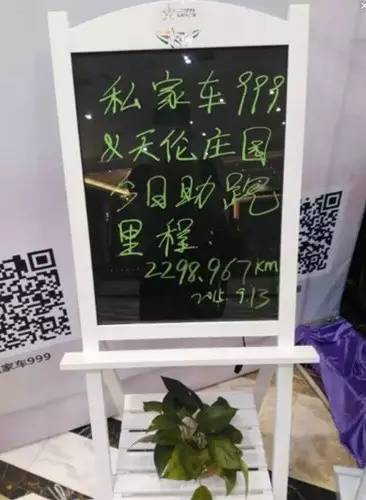 私家车999
&天伦庄园
今日助跑
里程:
2298.967km
2015.9.13
家车999